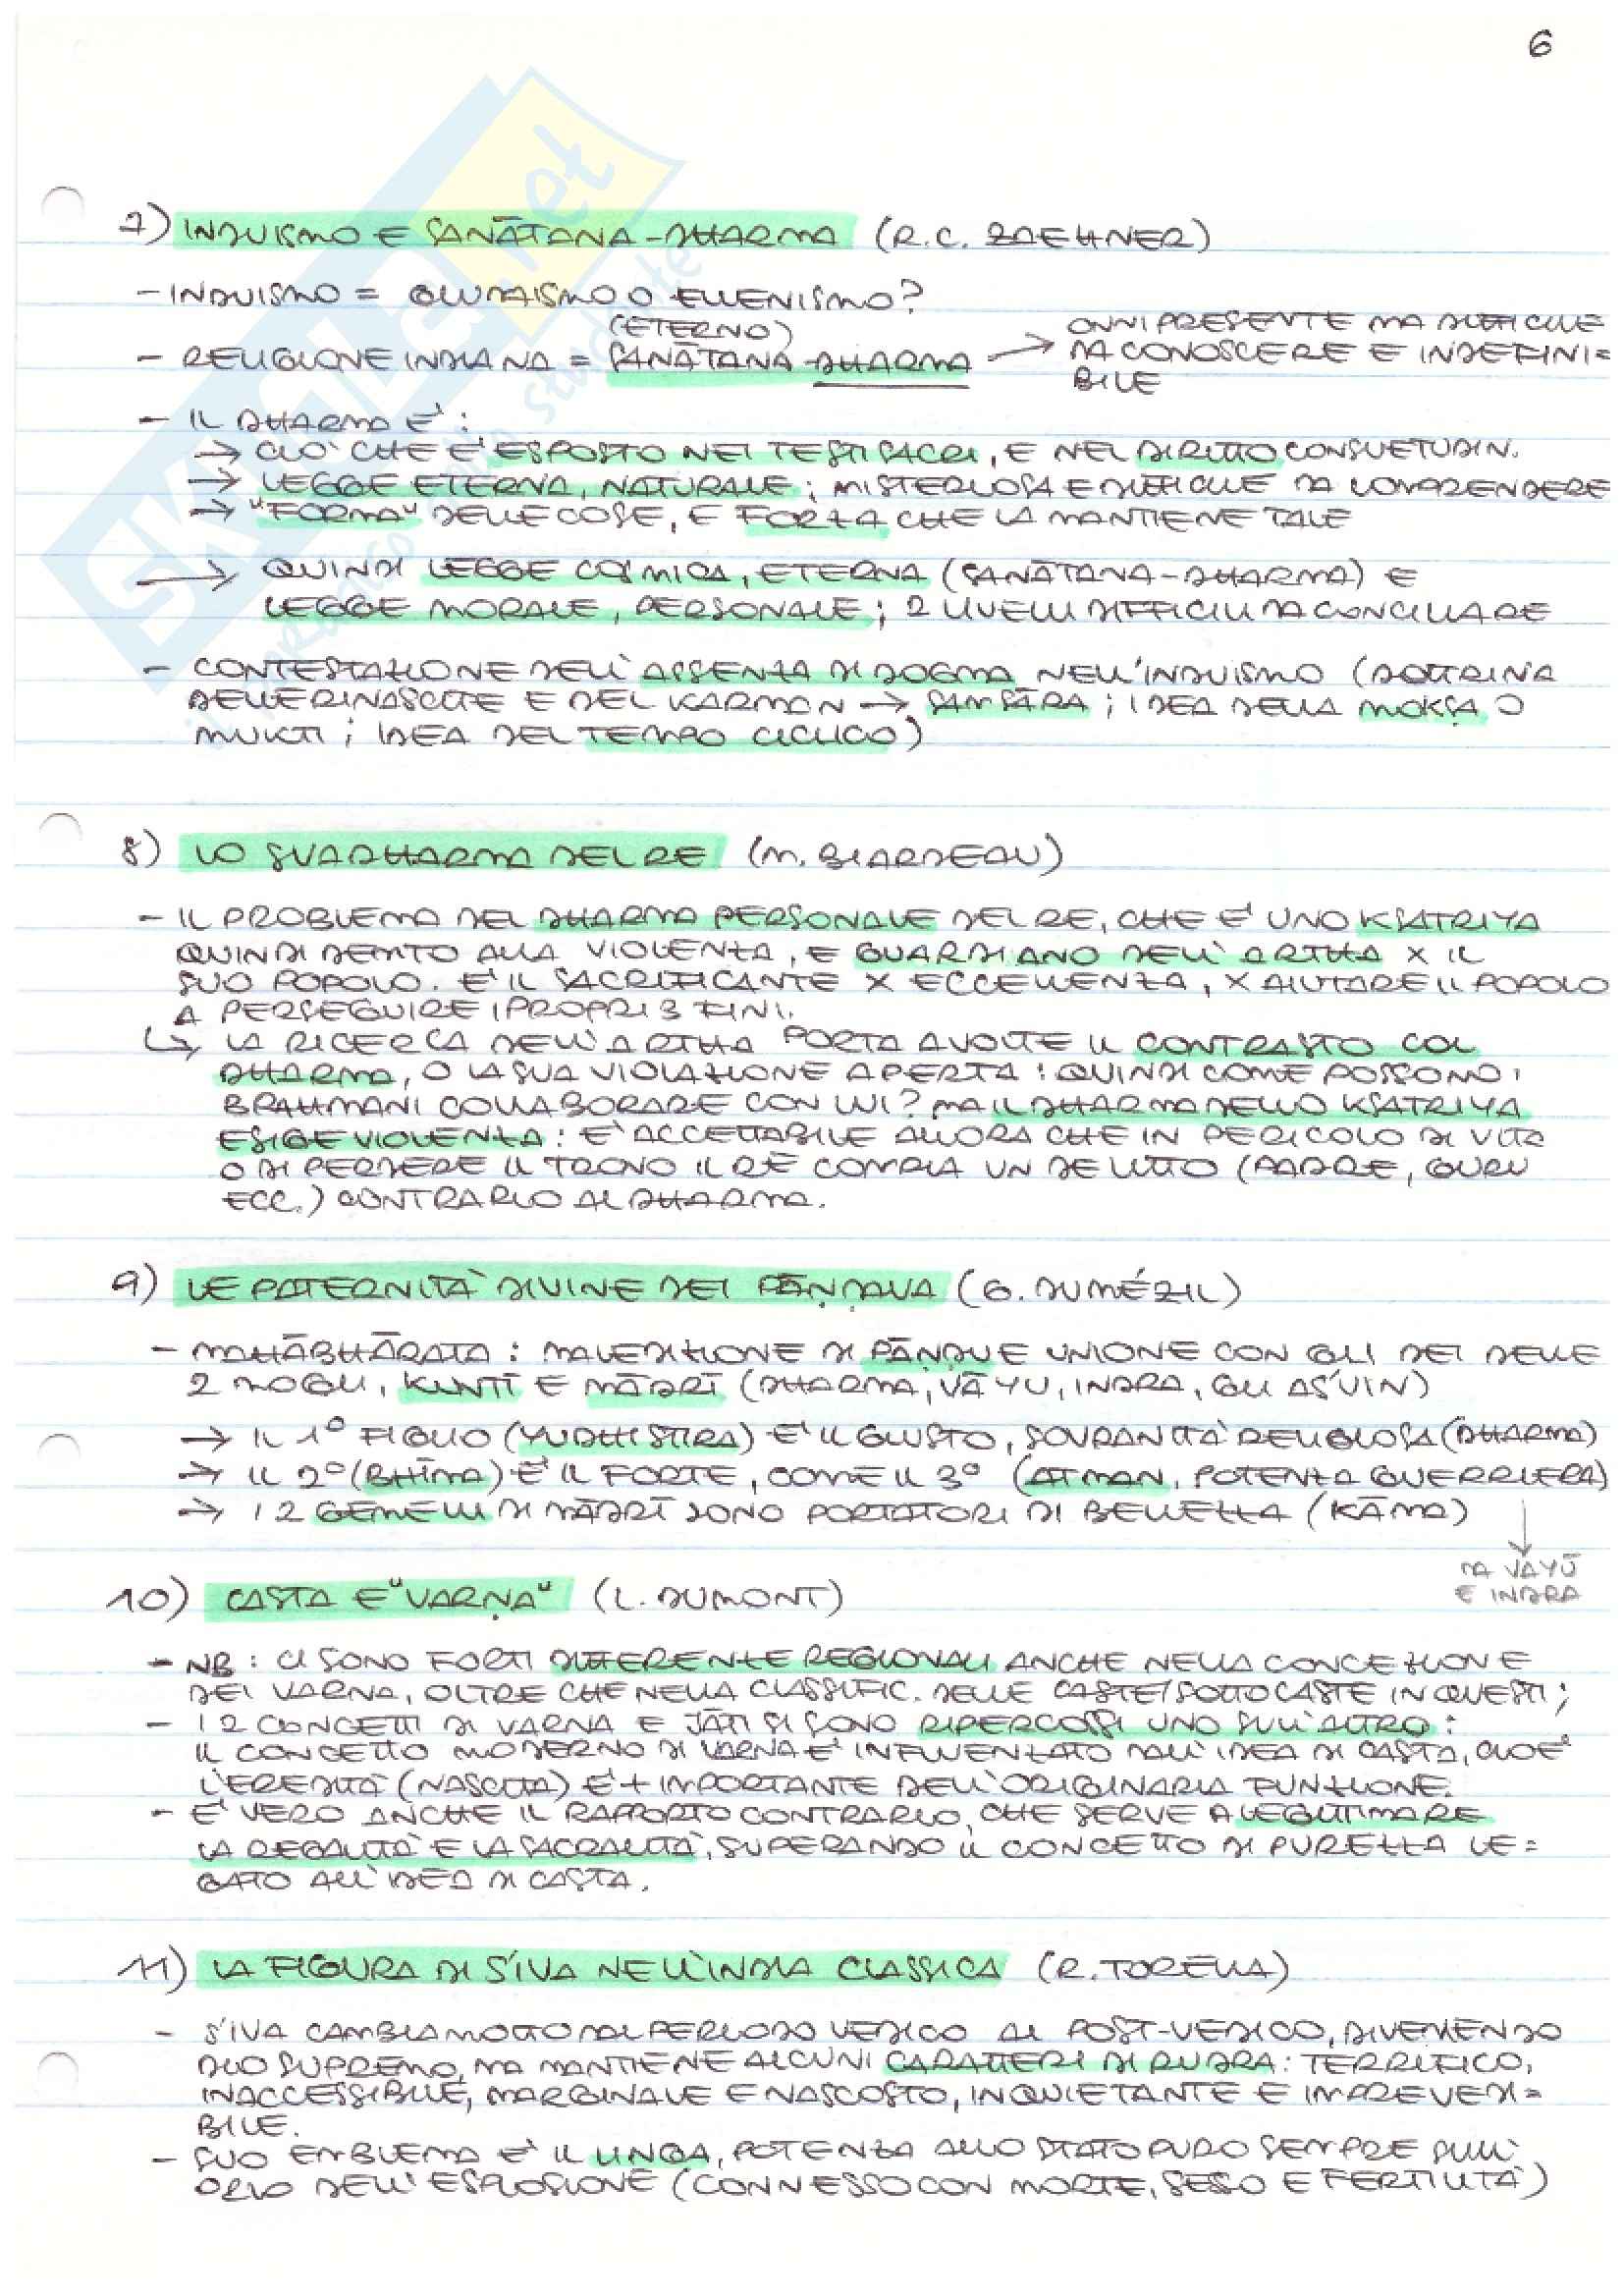 6
7) INDUISMO E SANĀTANA-DHARMA (R.C. ZAEHNER)
- INDUISMO = GIUDAISMO O ELLENISMO?
(ETERNO)
- RELIGIONE INDIANA = SANĀTANA-DHARMA → ONNIPRESENTE MA DIFFICILE
DA CONOSCERE E INDEFINI=
BILE
- IL DHARMA E':
→ CIO' CHE E' ESPOSTO NEI TESTI SACRI, E NEL DIRITTO CONSUETUDIN.
→ LEGGE ETERNA, NATURALE; MISTERIOSA E DIFFICILE DA COMPRENDERE
→ "FORMA" DELLE COSE, E FORZA CHE LA MANTIENE TALE
→ QUINDI LEGGE COSMICA, ETERNA (SANĀTANA-DHARMA) E
LEGGE MORALE, PERSONALE; 2 LIVELLI DIFFICILI DA CONCILIARE
- CONTESTAZIONE DELL'ASSENZA DI DOGMA NELL'INDUISMO (DOTTRINA
DELLE RINASCITE E DEL KARMAN → SAMSĀRA; IDEA DELLA MOKṢA O
MUKTI; IDEA DEL TEMPO CICLICO)
8) LO SVADHARMA DEL RE (M. BIARDEAU)
- IL PROBLEMA DEL DHARMA PERSONALE DEL RE, CHE E' UNO KSATRIYA
QUINDI DEDITO ALLA VIOLENZA, E GUARDIANO DELL'ARTHA X IL
SUO POPOLO. E' IL SACRIFICANTE X ECCELLENZA, X AIUTARE IL POPOLO
A PERSEGUIRE I PROPRI 3 FINI.
↳ LA RICERCA DELL'ARTHA PORTA A VOLTE IL CONTRASTO COL
DHARMA, O LA SUA VIOLAZIONE APERTA: QUINDI COME POSSONO I
BRAHMANI COLLABORARE CON LUI? MA IL DHARMA DELLO KSATRIYA
ESIGE VIOLENZA: E' ACCETTABILE ALLORA CHE IN PERICOLO DI VITA
O DI PERDERE IL TRONO IL RE COMPIA UN DELITTO (PADRE, GURU
ECC.) CONTRARIO AL DHARMA.
9) LE PATERNITÀ DIVINE DEI PĀṆḌAVA (G. DUMÉZIL)
- MAHĀBHĀRATA: MALEDIZIONE DI PĀṆḌU E UNIONE CON GLI DEI DELLE
2 MOGLI, KUNTĪ E MĀDRĪ (DHARMA, VĀYU, INDRA, GLI AS'VIN)
→ IL 1° FIGLIO (YUDHISTIRA) E' IL GIUSTO, SOVRANITÀ RELIGIOSA (DHARMA)
→ IL 2° (BHĪMA) E' IL FORTE, COME IL 3° (ATMAN, POTENZA GUERRIERA)
→ I 2 GEMELLI DI MĀDRĪ SONO PORTATORI DI BELLEZZA (KĀMA)
↓
DA VAYŪ
E INDRA
10) CASTA E "VARṆA" (L. DUMONT)
- NB: CI SONO FORTI DIFFERENZE REGIONALI ANCHE NELLA CONCEZIONE
DEI VARNA, OLTRE CHE NELLA CLASSIFIC. DELLE CASTE/SOTTOCASTE IN QUESTI;
- I 2 CONCETTI DI VARNA E JĀTI SI SONO RIPERCOSSI UNO SULL'ALTRO:
IL CONCETTO MODERNO DI VARNA E' INFLUENZATO DALL'IDEA DI CASTA, CIOE'
L'EREDITÀ (NASCITA) E' + IMPORTANTE DELL'ORIGINARIA FUNZIONE.
- E' VERO ANCHE IL RAPPORTO CONTRARIO, CHE SERVE A LEGITTIMARE
LA REGALITÀ E LA SACRALITÀ, SUPERANDO IL CONCETTO DI PUREZZA LE=
GATO ALL'IDEA DI CASTA.
11) LA FIGURA DI S'IVA NELL'INDIA CLASSICA (R. TORELLA)
- S'IVA CAMBIA MOLTO DAL PERIODO VEDICO AL POST-VEDICO, DIVENENDO
DIO SUPREMO, MA MANTIENE ALCUNI CARATTERI DI RUDRA: TERRIFICO,
INACCESSIBILE, MARGINALE E NASCOSTO, INQUIETANTE E IMPREVEDI=
BILE.
- SUO EMBLEMA E' IL LINGA, POTENZA ALLO STATO PURO SEMPRE SULL'
ORLO DELL'ESPLOSIONE (CONNESSO CON MORTE, SESSO E FERTILITÀ)
SKUOLA.net